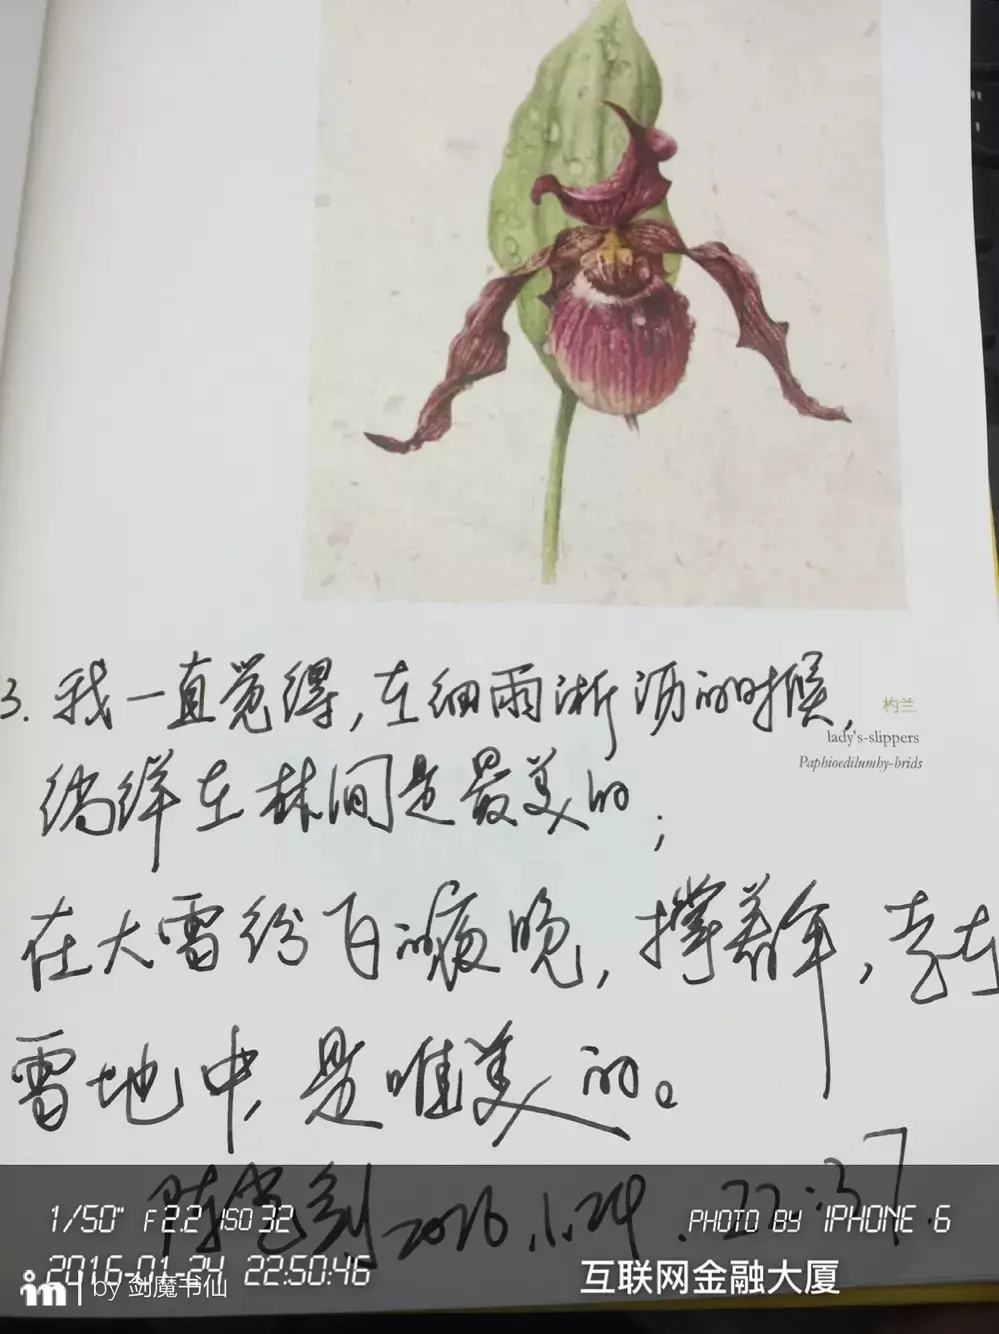 杓兰
lady's-slippers
Paphioedilumhy-brids
3. 我一直觉得,在细雨淅沥的时候,
徜徉在林间是最美的;
在大雪纷飞的夜晚,撑着伞,走在
雪地中,是唯美的。
2016.1.24. 22:37.
1/50" F2.2 ISO 32
PHOTO BY IPHONE 6
2016-01-24 22:50:46
互联网金融大厦
in | by 剑魔书仙